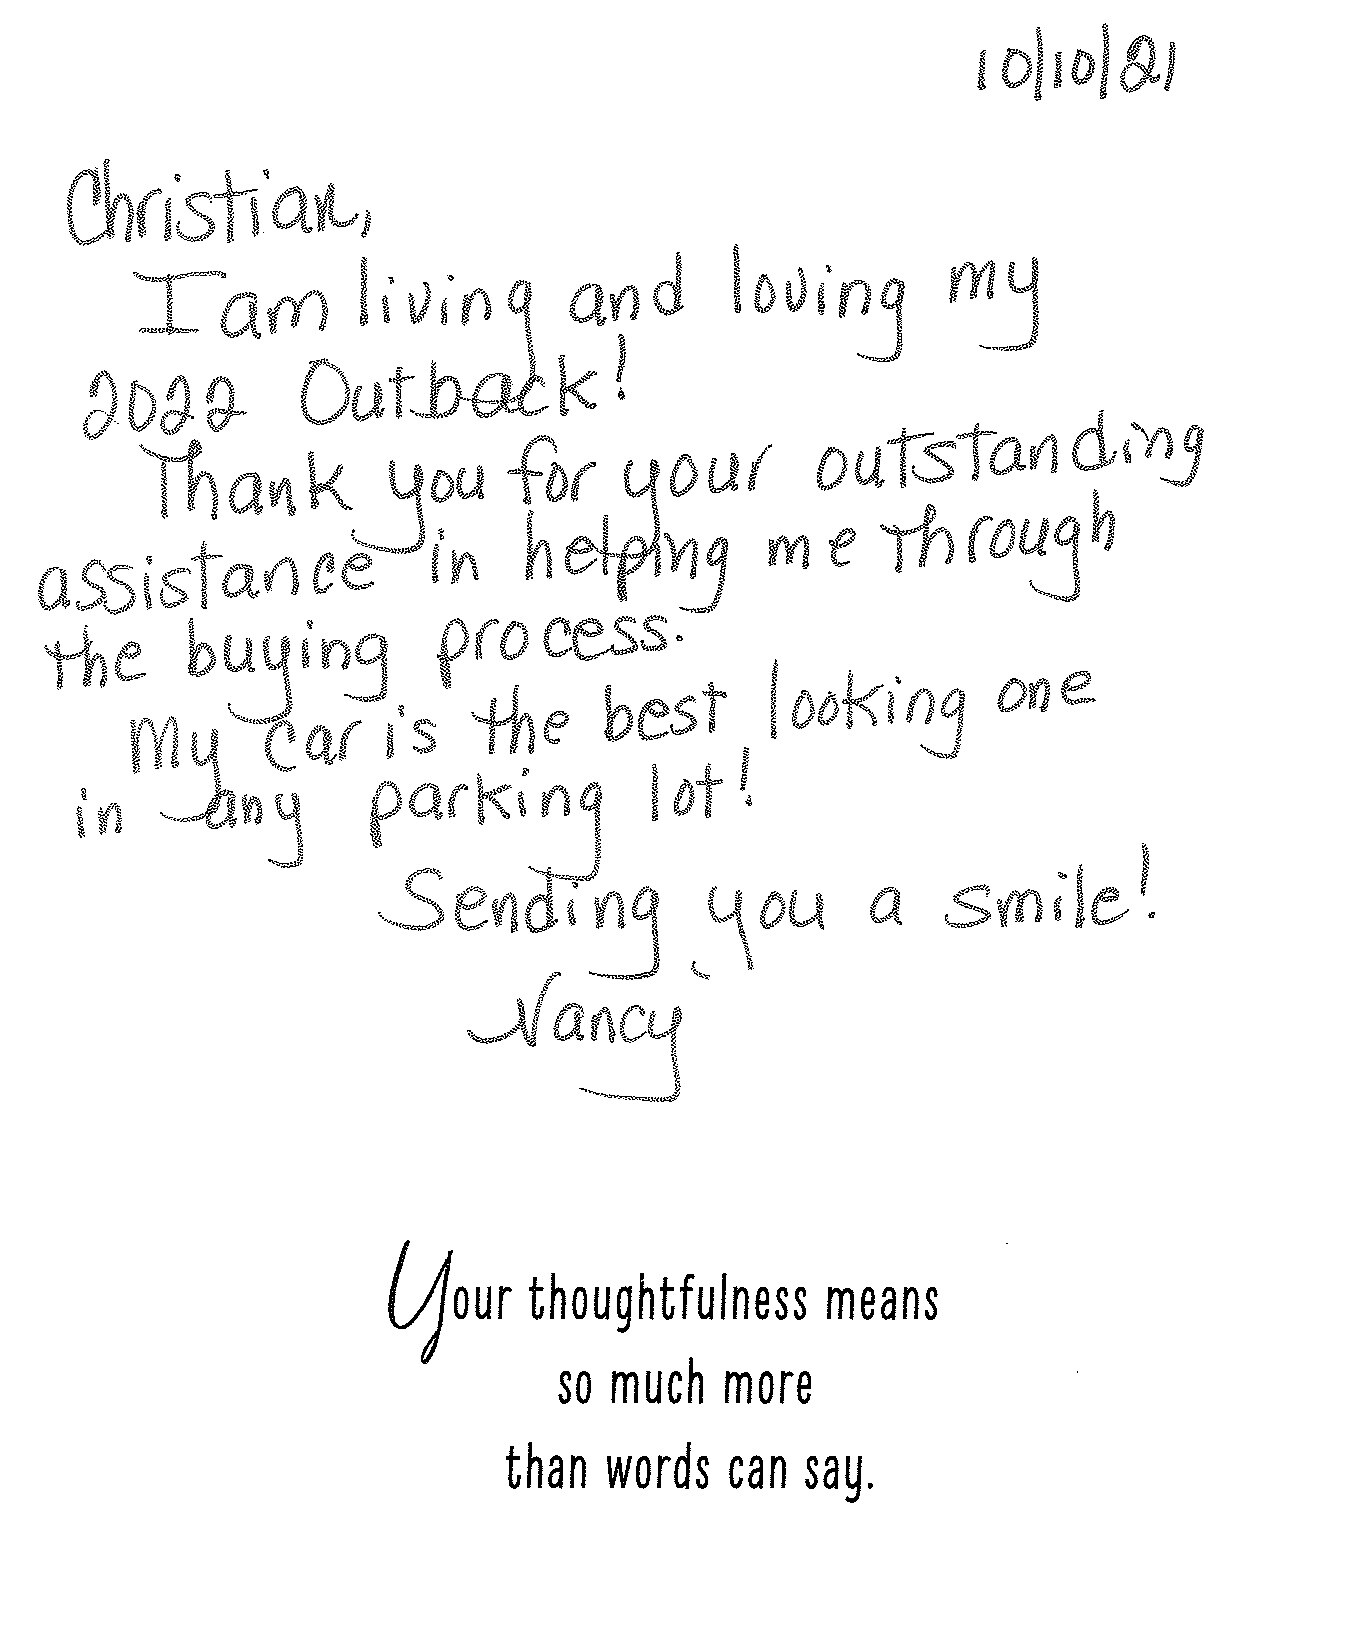 10/10/21
Christian,
I am living and loving my
2022 Outback!
Thank you for your outstanding
assistance in helping me through
the buying process.
My car is the best looking one
in any parking lot!
Sending you a smile!
Nancy
Your thoughtfulness means
so much more
than words can say.